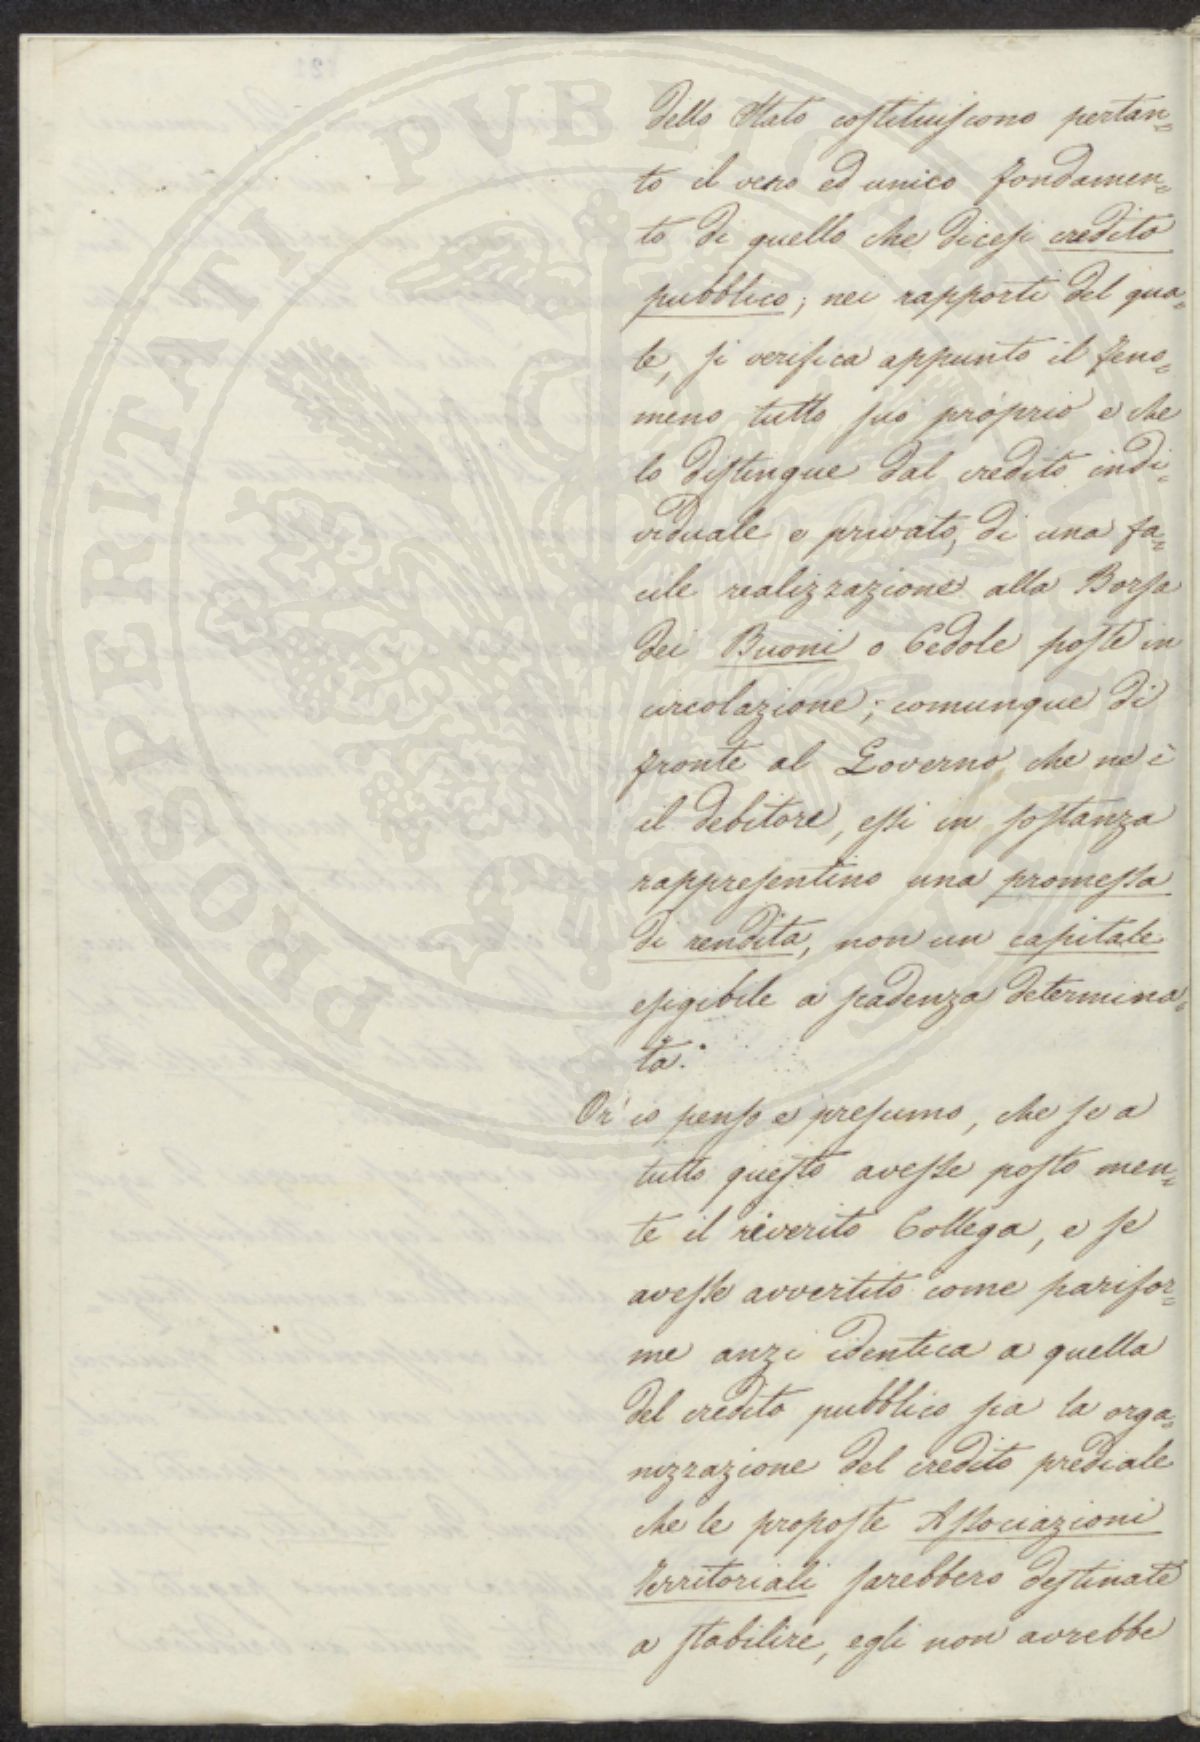 dello Stato costituiscono pertan=
to il vero ed unico fondamen=
to di quello che dicesi credito
pubblico; nei rapporti del qua=
le, si verifica appunto il feno=
meno tutto suo proprio e che
lo distingue dal credito indi=
viduale e privato, di una fa=
cile realizzazione alla Borsa
dei Buoni o Cedole poste in
circolazione; comunque di
fronte al Governo, che ne è
il debitore, essi in sostanza
rappresentino una promessa
di rendita, non un capitale
esigibile a scadenza determina=
ta.
Or' io penso e presumo, che se a
tutto questo avesse posto men=
te il riverito Collega, e se
avesse avvertito come parifor=
me anzi identica a quella
del credito pubblico sia la orga=
nizzazione del credito prediale
che le proposte Associazioni
Territoriali sarebbero destinate
a stabilire, egli non avrebbe
PROSPERITATI PUBLICAE AUGENDAE